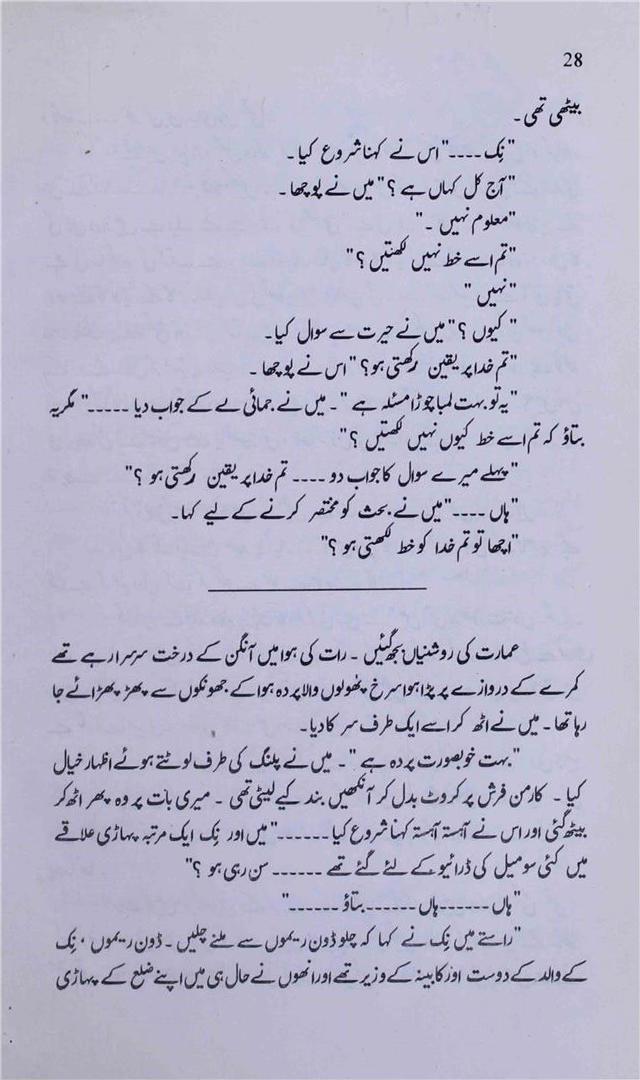 28
بیٹھی تھی۔
"نِک ----" اس نے کہنا شروع کیا۔
"آج کل کہاں ہے؟" میں نے پوچھا۔
"معلوم نہیں۔"
"تم اسے خط نہیں لکھتیں؟"
"نہیں"
"کیوں؟" میں نے حیرت سے سوال کیا۔
"تم خدا پر یقین رکھتی ہو؟" اس نے پوچھا۔
"یہ تو بہت لمبا چوڑا مسئلہ ہے"۔ میں نے جمائی لے کے جواب دیا -----" مگر یہ
بتاؤ کہ تم اسے خط کیوں نہیں لکھتیں؟"
"پہلے میرے سوال کا جواب دو ---- تم خدا پر یقین رکھتی ہو؟"
"ہاں ----" میں نے بحث کو مختصر کرنے کے لیے کہا۔
"اچھا تو تم خدا کو خط لکھتی ہو؟"
عمارت کی روشنیاں بجھ گئیں۔ رات کی ہوا میں آنگن کے درخت سرسرا رہے تھے
کمرے کے دروازے پر پڑا ہوا سرخ پھولوں والا پردہ ہوا کے جھونکوں سے پھڑ پھڑائے جا
رہا تھا۔ میں نے اٹھ کر اسے ایک طرف سرکا دیا۔
"بہت خوبصورت پردہ ہے"۔ میں نے پلنگ کی طرف لوٹتے ہوئے اظہار خیال
کیا۔ کارمن فرش پر کروٹ بدل کر آنکھیں بند کیے لیٹی تھی۔ میری بات پر وہ پھر اٹھ کر
بیٹھ گئی اور اس نے آہستہ آہستہ کہنا شروع کیا ------" میں اور نِک ایک مرتبہ پہاڑی علاقے
میں کئی سو میل کی ڈرائیو کے لئے گئے تھے ------ سن رہی ہو؟"
"ہاں ------ ہاں ------ بتاؤ ------"
"راستے میں نِک نے کہا کہ چلو ڈون ریموں سے ملنے چلیں۔ ڈون ریموں، نِک
کے والد کے دوست اور کابینہ کے وزیر تھے اور انھوں نے حال ہی میں اپنے ضلع کے پہاڑی